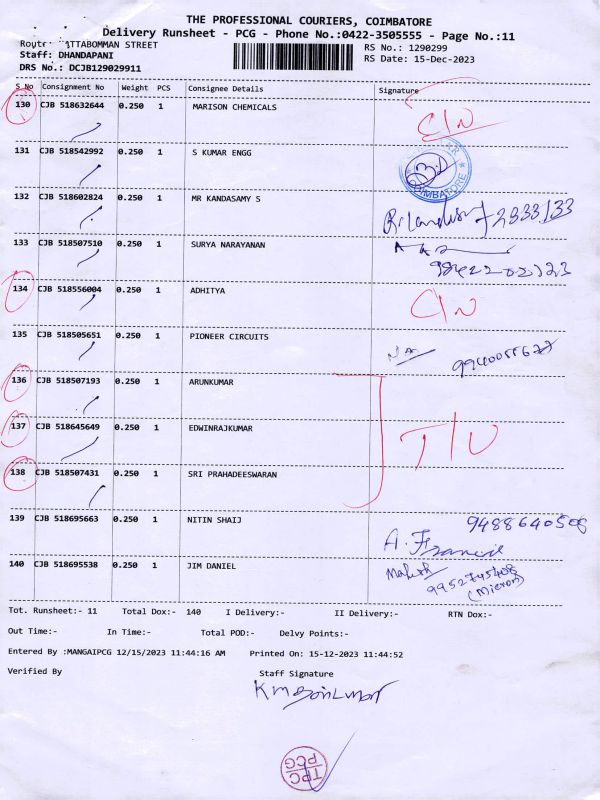 THE PROFESSIONAL COURIERS, COIMBATORE
Delivery Runsheet - PCG - Phone No.:0422-3505555 - Page No.:11
ATTABOMMAN STREET RS No.: 1290299
Staff: DHANDAPANI RS Date: 15-Dec-2023
DRS No.: DCJB129029911
S No Consignment No Weight PCS Consignee Details Signature
130 CJB 518632644 0.250 1 MARISON CHEMICALS
C/N
131 CJB 518542992 0.250 1 S KUMAR ENGG
132 CJB 518602824 0.250 1 MR KANDASAMY S
133 CJB 518507510 0.250 1 SURYA NARAYANAN
134 CJB 518556004 0.250 1 ADHITYA
C/N
135 CJB 518505651 0.250 1 PIONEER CIRCUITS
136 CJB 518507193 0.250 1 ARUNKUMAR
137 CJB 518645649 0.250 1 EDWINRAJKUMAR
138 CJB 518507431 0.250 1 SRI PRAHADEESWARAN
139 CJB 518695663 0.250 1 NITIN SHAIJ
9488640508
A. Francis
140 CJB 518695538 0.250 1 JIM DANIEL
Mahesh
(Micron)
Tot. Runsheet:- 11 Total Dox:- 140 I Delivery:- II Delivery:- RTN Dox:-
Out Time:- In Time:- Total POD:- Delvy Points:-
Entered By :MANGAIPCG 12/15/2023 11:44:16 AM Printed On: 15-12-2023 11:44:52
Verified By Staff Signature
TPC
PCG